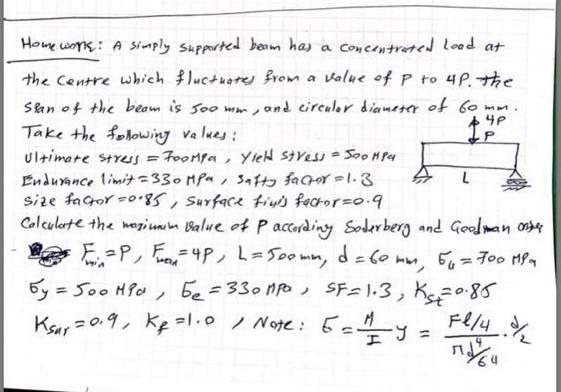 Home work: A simply supported beam has a concentrated load at
the centre which fluctuates from a value of P to 4P. the
span of the beam is 500 mm, and circular diameter of 60 mm.
Take the following values:
4P
P
Ultimate stress = 700 MPa, Yield stress = 500 MPa
Endurance limit = 330 MPa, safty factor = 1.3
L
size factor = 0.85, surface finis factor = 0.9
Calculate the maximum value of P according Soderberg and Goodman
F min = P, F max = 4P, L = 500 mm, d = 60 mm, σu = 700 MPa
σy = 500 MPa, σe = 330 MPa, SF = 1.3, Ksz = 0.85
Ksur = 0.9, Kf = 1.0, Note: σ = M/I y = Fl/4 / πd⁴/64 . d/2